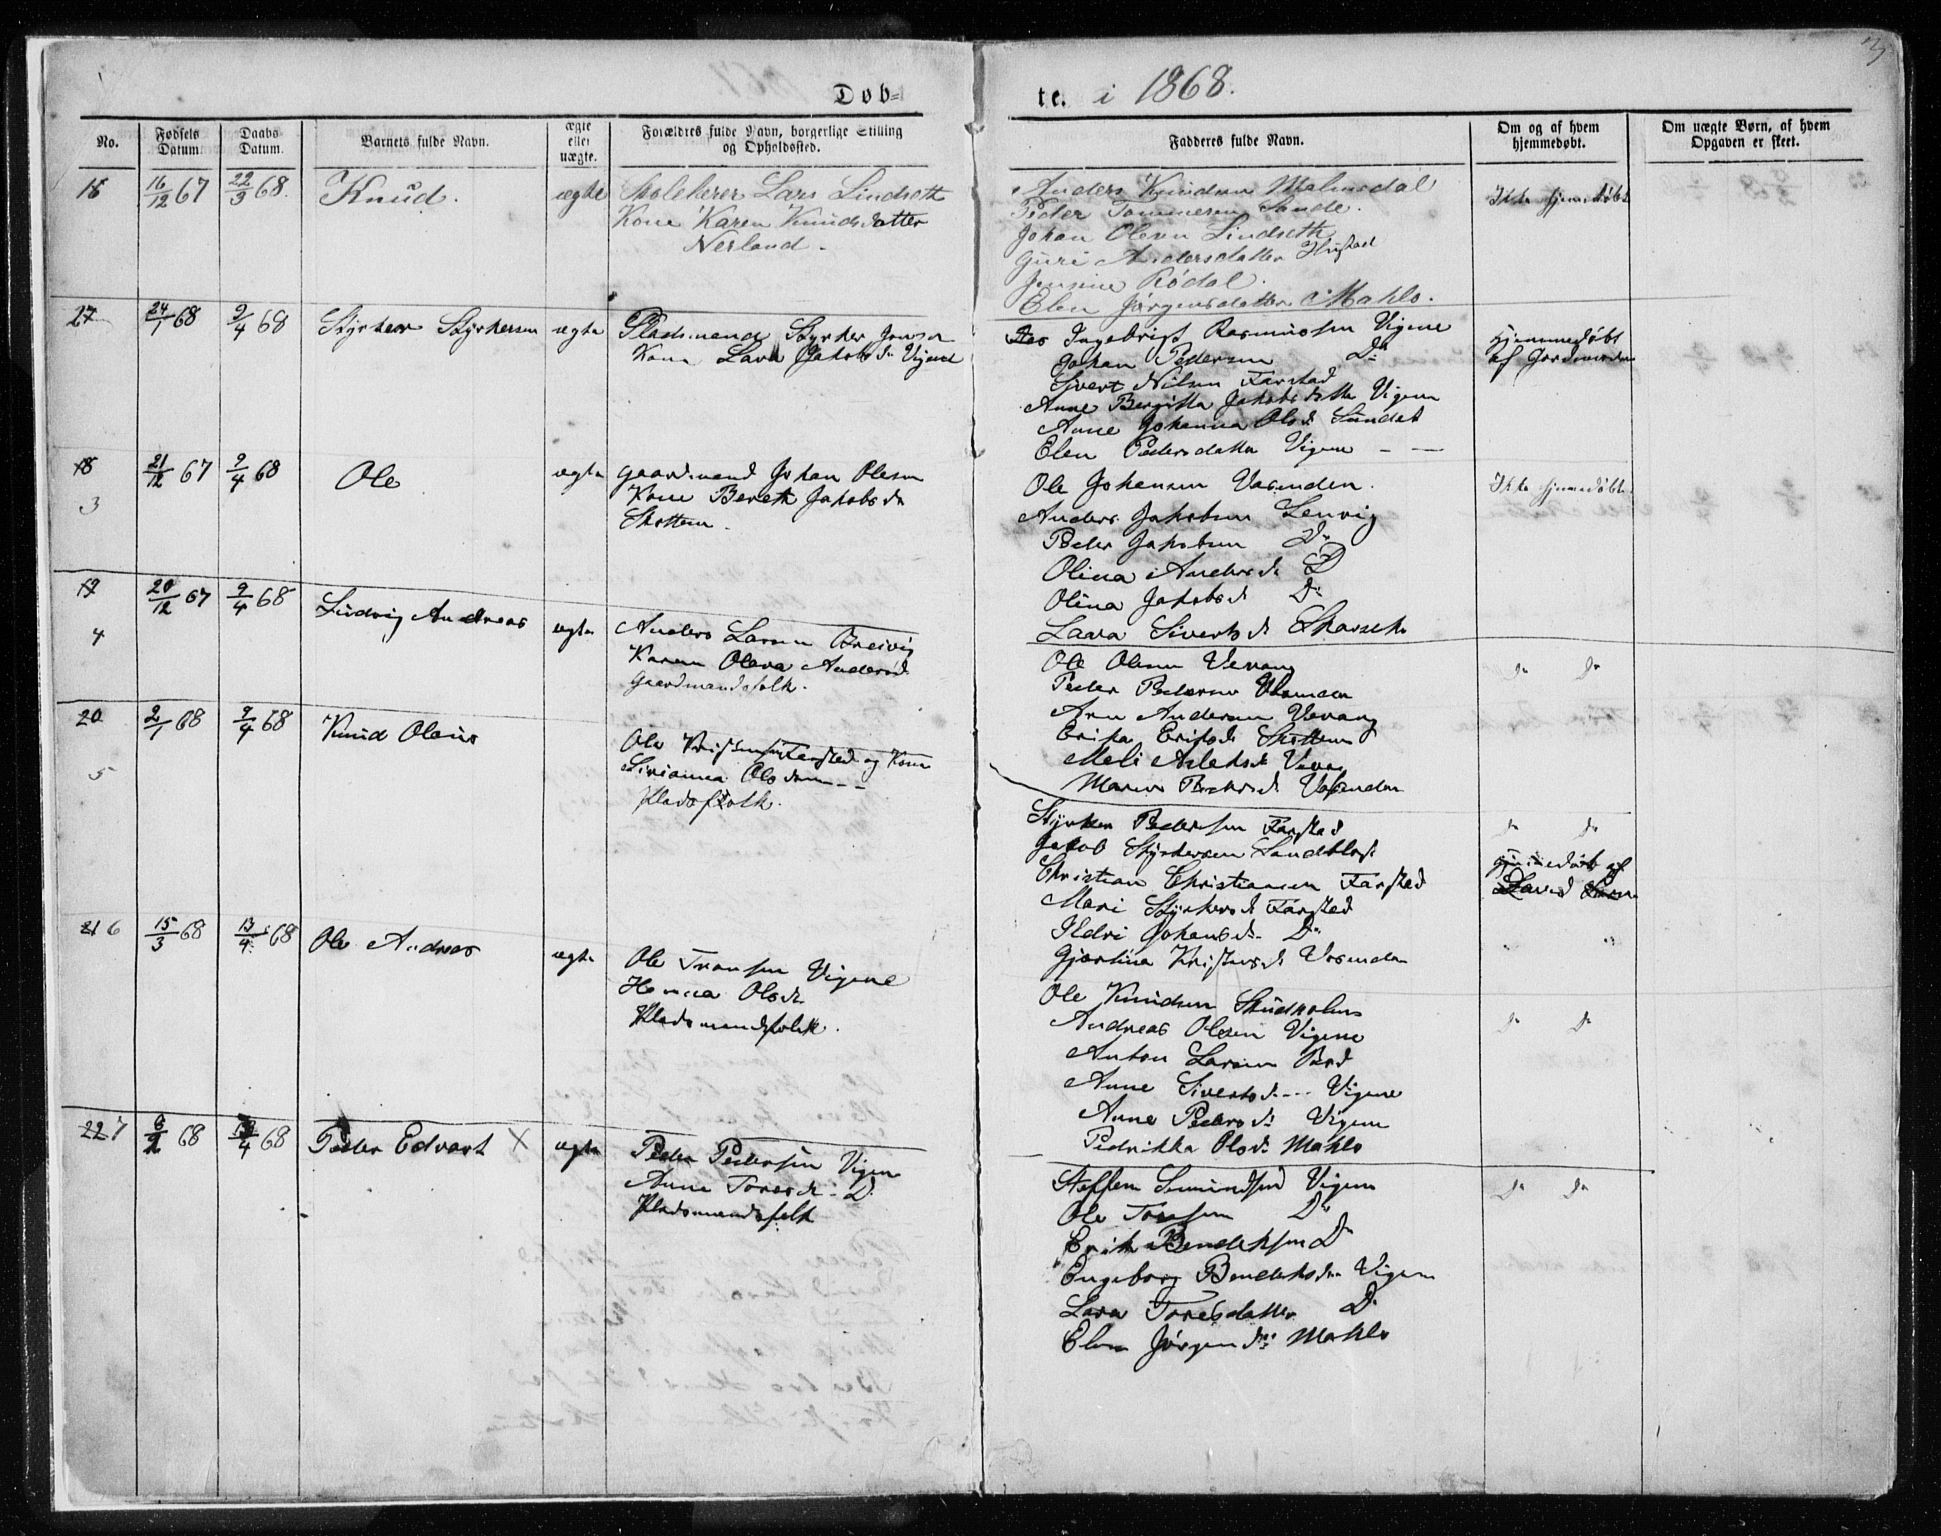 3
Døb-
te. i 1868.
No.
Fødsels Datum.
Daabs Datum.
Barnets fulde Navn.
ægte eller uægte.
Forældres fulde Navn, borgerlige Stilling og Opholdssted.
Fadderes fulde Navn.
Om og af hvem hjemmedøbt.
Om uægte Børn, af hvem Opgaven er skeet.
16 16/12 67 22/3 68. Knud. ægte
Skolelærer Lars Lindseth
Kone Karen Knudsdatter
Nerland.
Anders Knudsen Malmedal
Peder Tommesen Sande.
Johan Olsen Lindseth
Guri Andersdatter Hustad
Jensine Rødal.
Elen Jørgensdatter Mahlo.
Ikke hjemmedøbt
27 24/1 68 9/4 68 Styrker Styrkersen ægte
Pladsmand Styrker Jonsen
Kone Lava Jakobsdr Vigene
Ingebrigt Rasmussen Vigene
Johan Pedersen Do
Sivert Nilsen Farstad
Anne Bergitta Jakobsdatter Vigene
Anne Johanna Olsdr Sundet
Elen Pedersdatter Vigene
Hjemmedøbt
af Jordmoderen
18 21/12 67 9/4 68 Ole ægte
3
Gaardmand Johan Olesen
Kone Bereth Jakobsdr
Skottem.
Ole Johansen Vasenden.
Anders Jakobsen Lervig
Peder Jakobsen Do
Olina Andersdr Do
Olina Jakobsdr Do
Lava Sivertsdr Skarseth
Ikke hjemmedøbt
19 20/12 67 9/4 68 Ludvig Andreas ægte
4
Anders Larsen Breivig
Karen Olava Andersdr
Gaardmandsfolk.
Ole Olsen Vevang
Peder Pedersen Vasenden
Arn Andersen Vevang
Erika Eriksdr Skottem
Meli Aslaksdr Vevang
Maren Pedersdr Vasenden
Do Do
20 2/1 68 9/4 68 Knud Olaus
5
Ole Kristensen Farstad og Kone
Sirianna Olsdr
Pladsfolk.
Styrker Pedersen Farstad
Jakob Styrkersen Sandblost
Christian Christiansen Farstad
Mari Styrkersdr Farstad
Ildri Johansdr Do
Gjertina Kristensdr Vasenden
Do Do
hjemmedøbt af
David
21 6 15/3 68 13/4 68 Ole Andreas ægte
Ole Tronsen Vigene
Hanna Olsdr
Pladsmandsfolk.
Ole Knudsen Skudholm
Andreas Olsen Vigene
Anton Larsen Bod
Anne Sivertsdr Vigene
Anne Pedersdr Vigene
Pedrikka Olsdr Mahlo
Do Do
22 7 6/2 68 13/4 68 Peder Edvart X ægte
Peder Pedersen Vigene
Anne Toresdr Do
Pladsmandsfolk
Steffen Semundsen Vigene
Ole Toresen Do
Erik Bendiksen Do
Engeborg Bendiksdr Vigene
Lava Toresdatter Do
Elen Jørgensdr Mahlo
Do Do